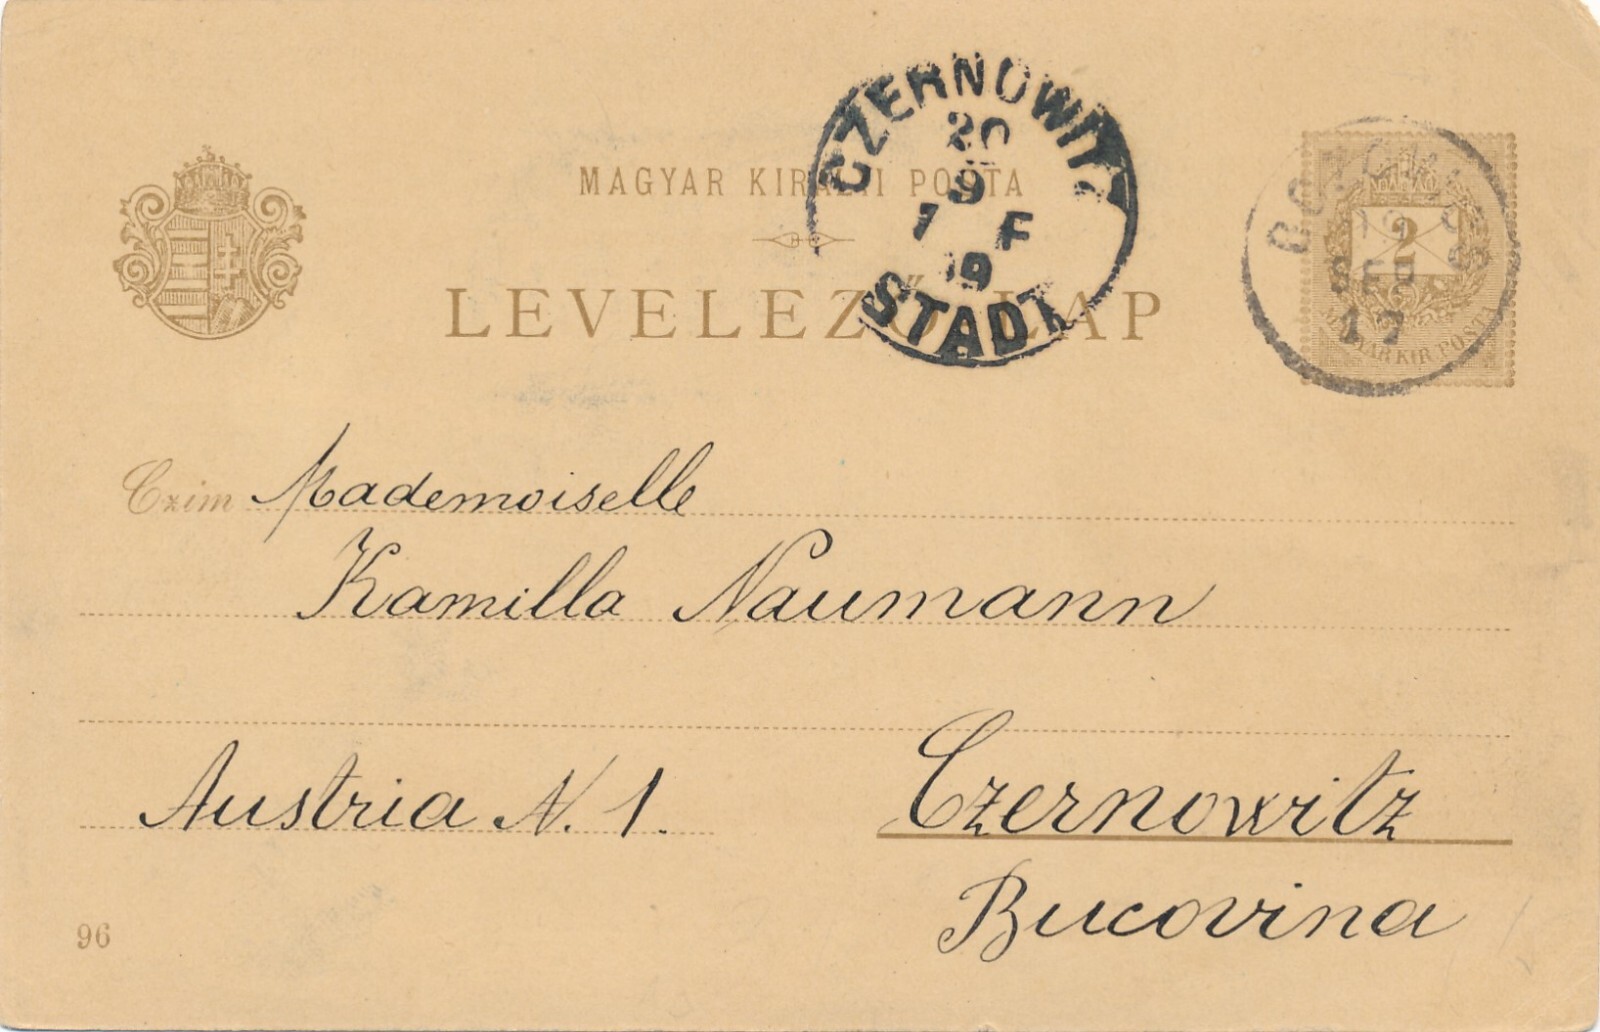 MAGYAR KIRÁLYI POSTA
LEVELEZŐ-LAP
CZERNOWITZ
20
9
1 F
STADT
2
MAGYAR KIR. POSTA
SEP.
17
Czim Mademoiselle
Kamilla Naumann
Austria N. 1.
Czernowitz
Bucovina
96